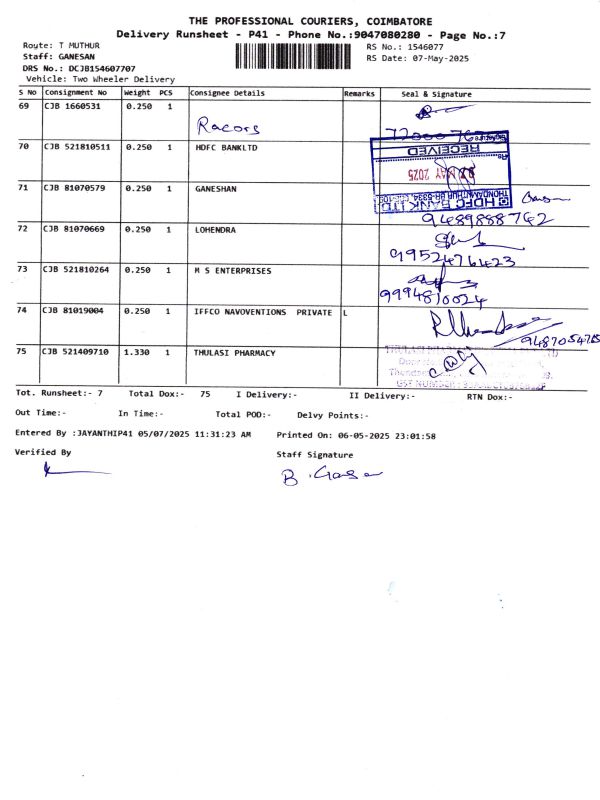 THE PROFESSIONAL COURIERS, COIMBATORE
Delivery Runsheet - P41 - Phone No.:9047080280 - Page No.:7
Route: T MUTHUR
RS No.: 1546077
Staff: GANESAN
RS Date: 07-May-2025
DRS No.: DCJB154607707
Vehicle: Two Wheeler Delivery
S No Consignment No Weight PCS Consignee Details Remarks Seal & Signature
69 CJB 1660531 0.250 1
Racors
70 CJB 521810511 0.250 1 HDFC BANKLTD
RECEIVED
MAY 2025
HDFC BANK LTD
71 CJB 81070579 0.250 1 GANESHAN
9489888742
72 CJB 81070669 0.250 1 LOHENDRA
9952476423
73 CJB 521810264 0.250 1 M S ENTERPRISES
9994810024
74 CJB 81019004 0.250 1 IFFCO NAVOVENTIONS PRIVATE L
9487054765
75 CJB 521409710 1.330 1 THULASI PHARMACY
Tot. Runsheet:- 7 Total Dox:- 75 I Delivery:- II Delivery:- RTN Dox:-
Out Time:- In Time:- Total POD:- Delvy Points:-
Entered By :JAYANTHIP41 05/07/2025 11:31:23 AM Printed On: 06-05-2025 23:01:58
Verified By Staff Signature